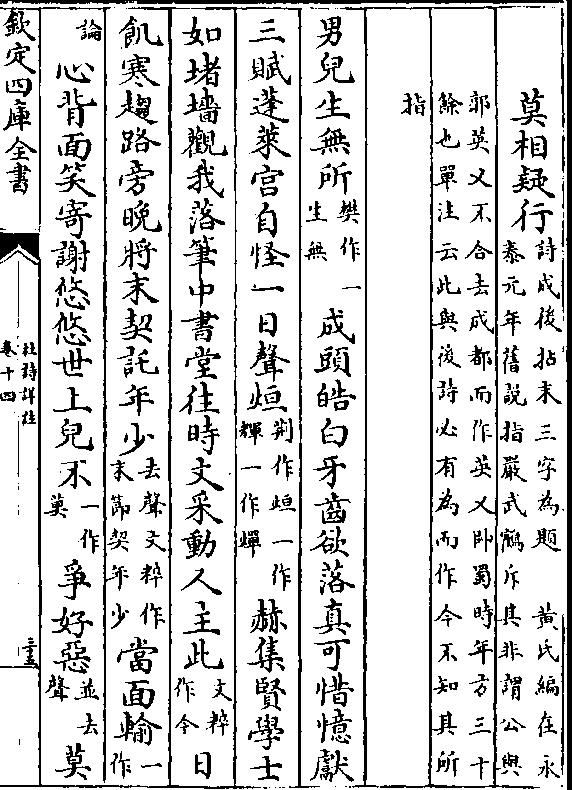 莫相疑行詩成後拈末三字為題　黃氏編在永
泰元年舊說指嚴武鶴斥其非謂公與
郭英乂不合去成都而作英乂帥蜀時年方三十
餘也單注云此與後詩必有為而作今不知其所
指
男兒生無所樊作一生無成頭皓白牙齒欲落真可惜憶獻
三賦蓬萊宮自怪一日聲烜荆作烜一作輝一作燀赫集賢學士
如堵墻觀我落筆中書堂往時文采動人主此文粹作今日
飢寒趨路旁晚將末契託年少去聲文粹作末節契年少當面輸一作
論心背面笑寄謝悠悠世上兒不一作莫爭好惡並去聲莫
欽定四庫全書
杜詩詳注
卷十四